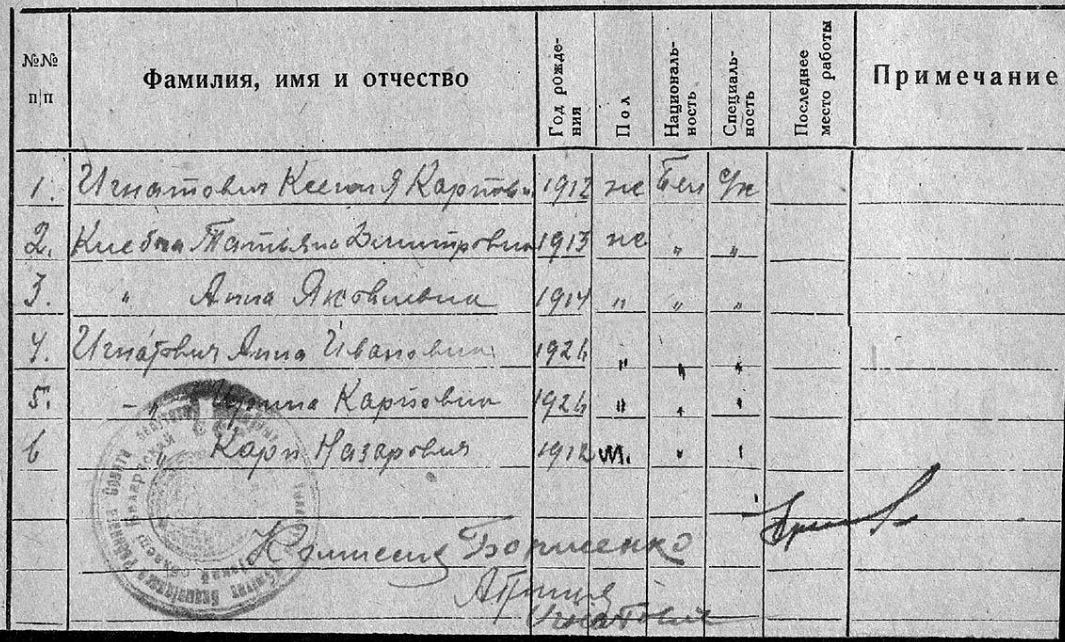 №№ п/п Фамилия, имя и отчество Год рожде- ния Пол Националь- ность Специаль- ность Последнее место работы Примечание
1. Игнатович Ксения Карповн 1912 же Бел с/х
2. Татьяна Димитровна 1913 же " "
3. " Анна Яковлевна 1914 " " "
4. Игнатович Анна Ивановна 192 " " "
5. - " Карповна 192 " " "
6 " Карп Назарович 1912 м. " "
Комиссия Борисенко
Игнатович